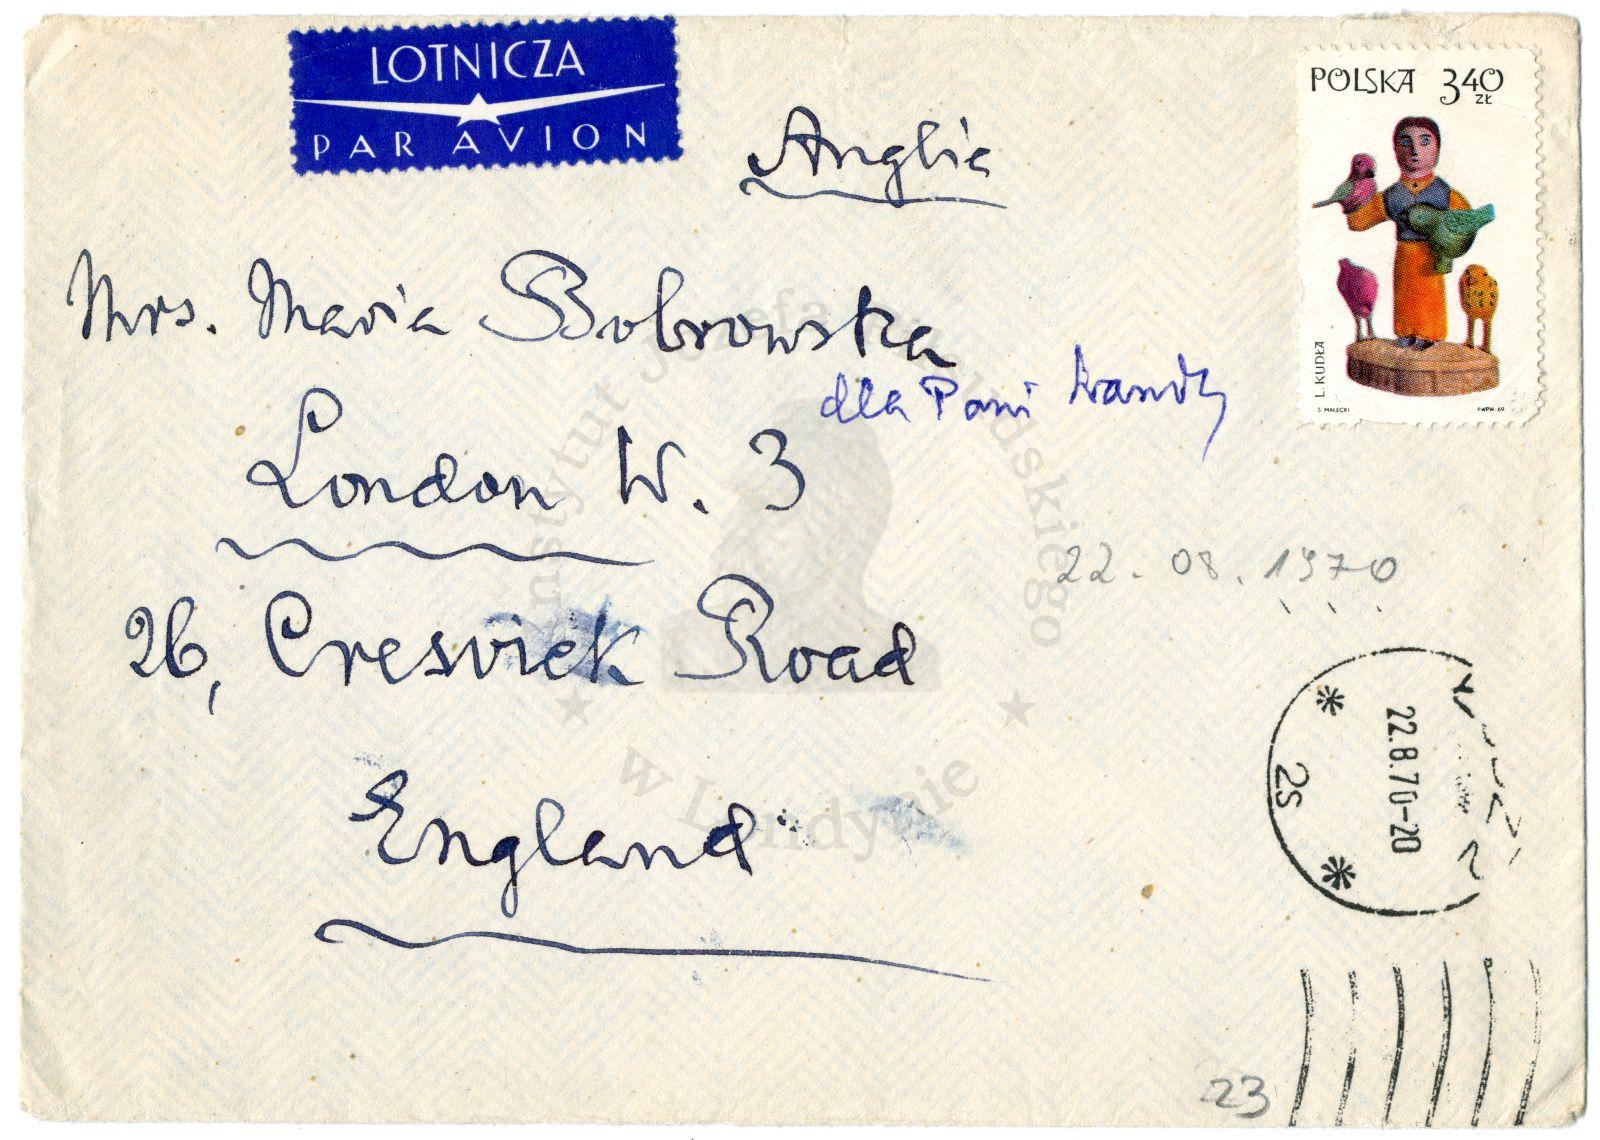 LOTNICZA
PAR AVION
POLSKA 340
ZŁ
Anglia
Mrs. Maria Bobrowska
dla Pani Wandy
L. KUDŁA
S. MAŁECKI PWPW-69
London W. 3
22.08.1970
26, Creswick Road
22.8.70-20
2S
England
23
Instytut Józefa Piłsudskiego
w Londynie